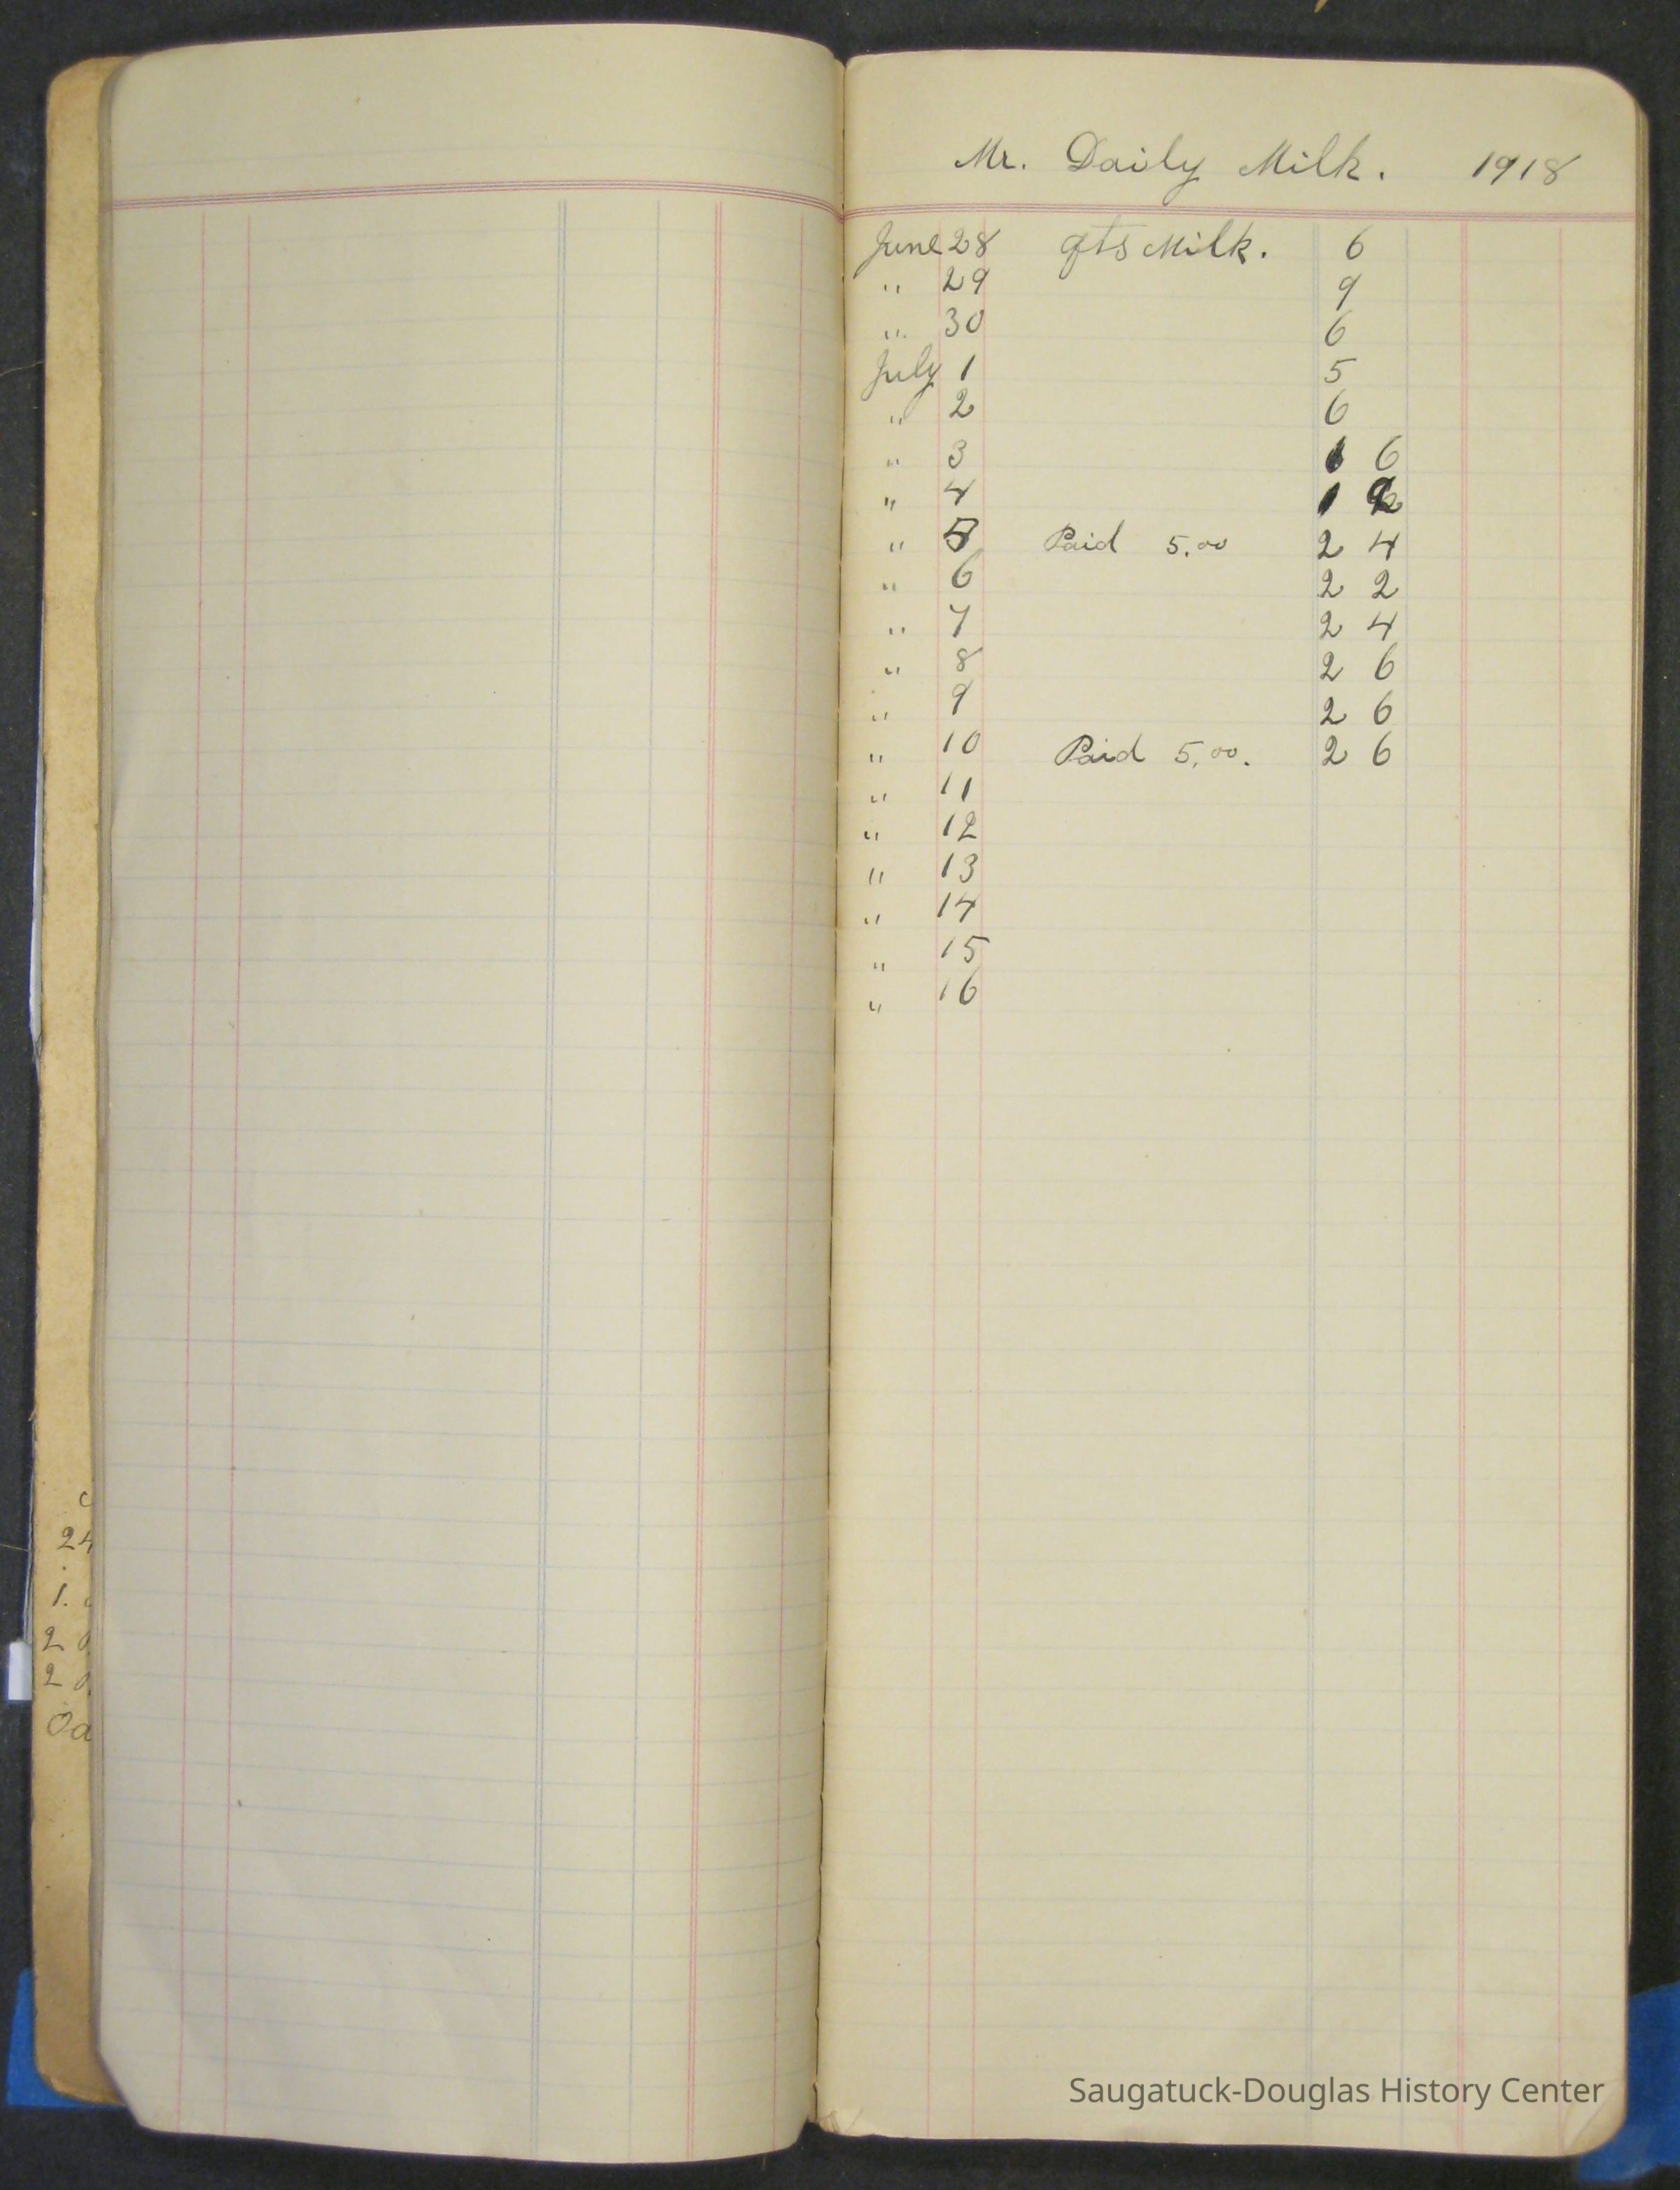 Mr. Daily Milk. 1918
June 28 qts Milk. 6
" 29 9
" 30 6
July 1 5
" 2 6
" 3 1 6
" 4 1
" 5 Paid 5.00 2 4
" 6 2 2
" 7 2 4
" 8 2 6
" 9 2 6
" 10 Paid 5.00. 2 6
" 11
" 12
" 13
" 14
" 15
" 16
24
1.
2
2
Oa
Saugatuck-Douglas History Center